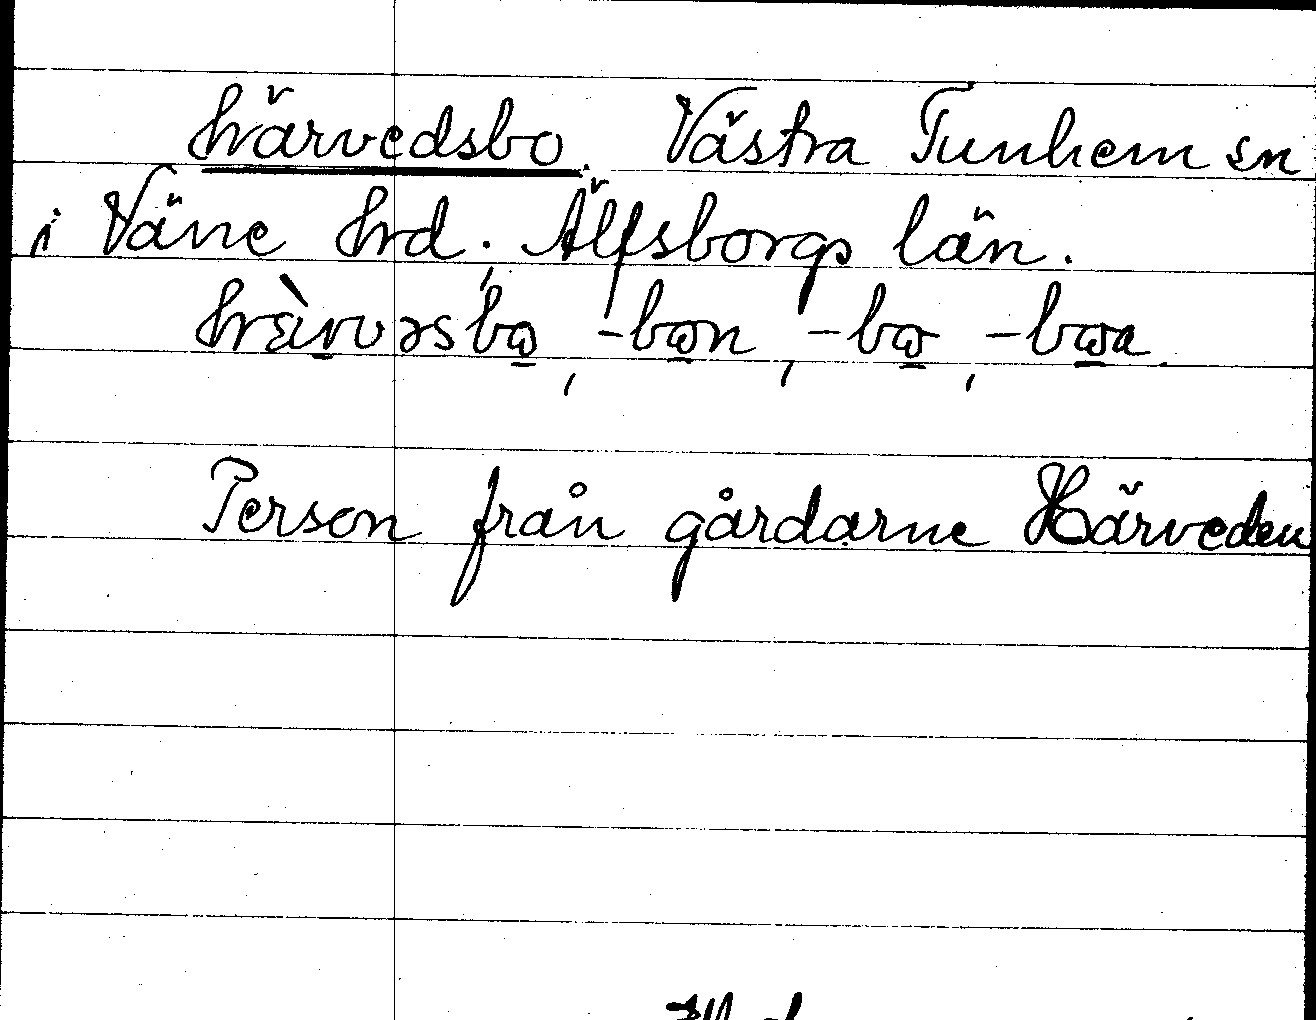 härvedsbo. Västra Tunhem sn
i Väne hrd. Älfsborgs län.
hàrvəsbɷ, -bɷn, -bɷ, -bɷa.
Person från gårdarne Härveden